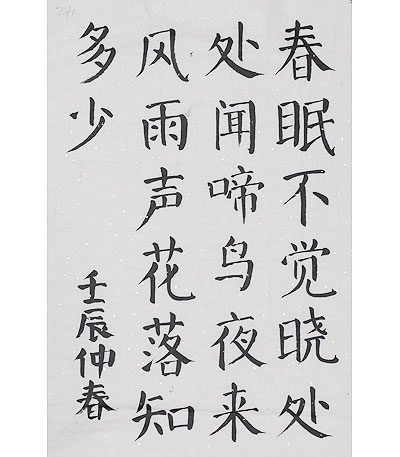 春眠不觉晓处
处闻啼鸟夜来
风雨声花落知
多少
壬辰仲春